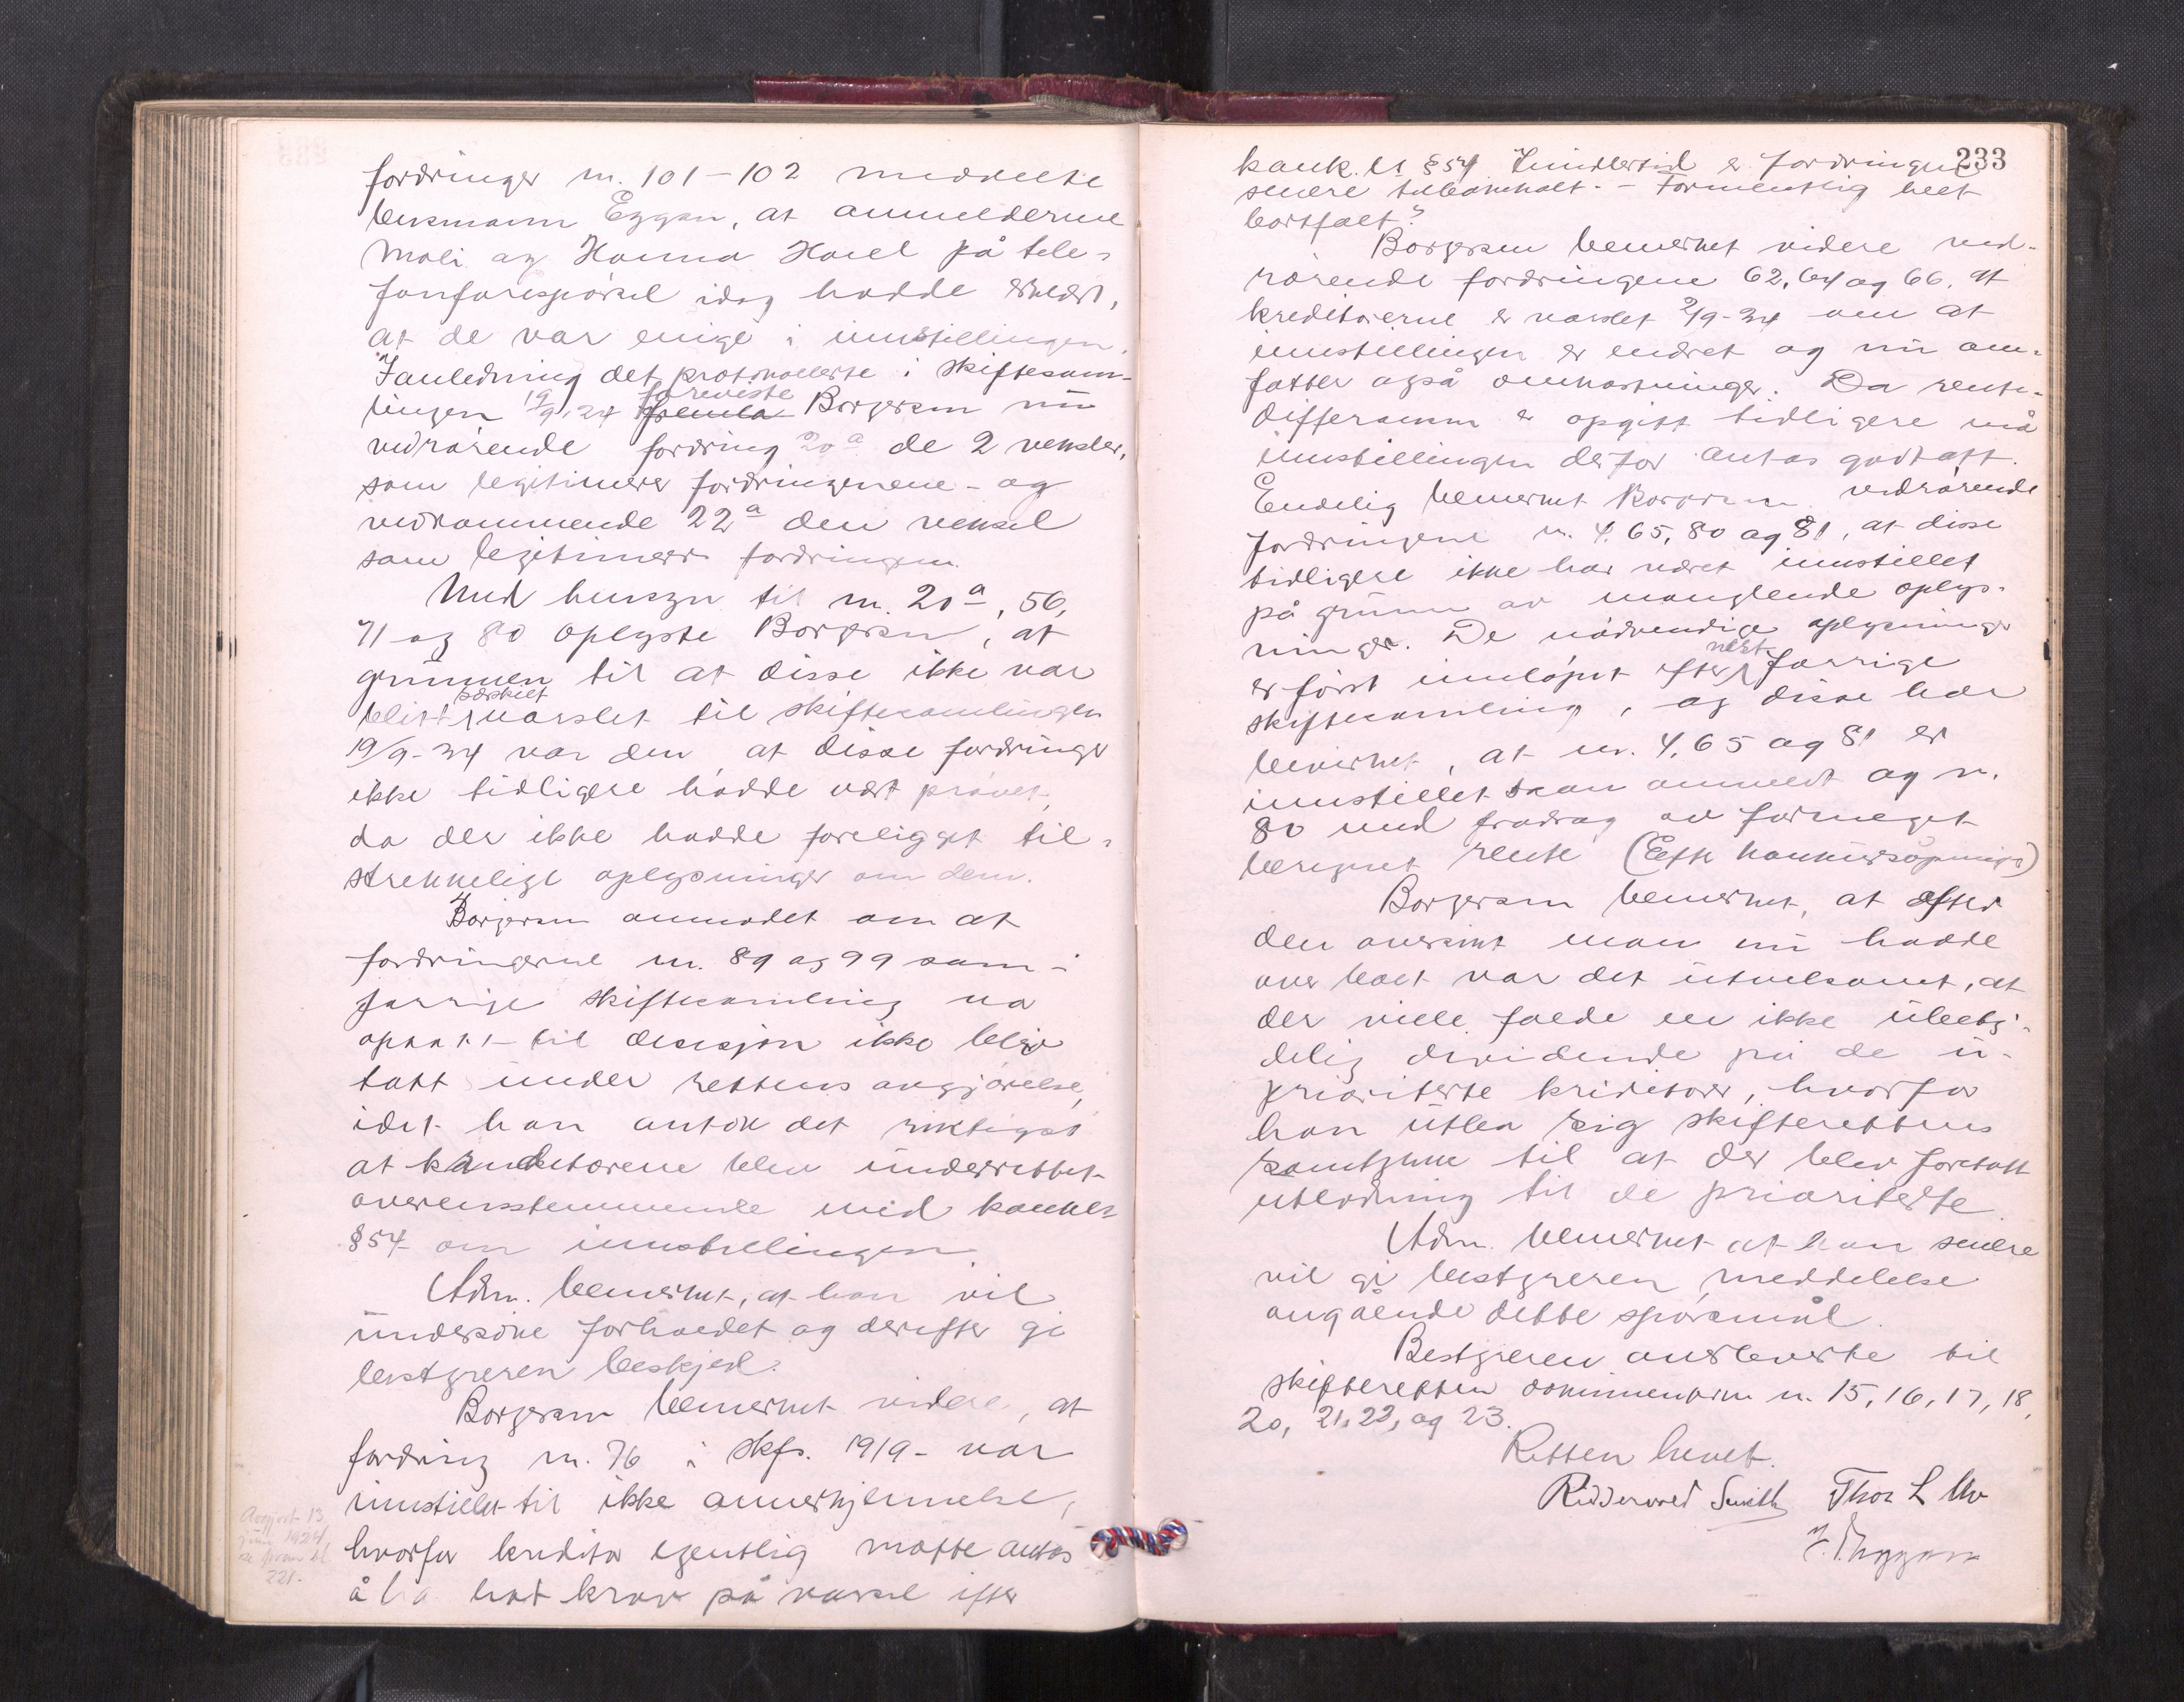 fordringer nr. 101-102 meddelte
lensmann Eggan, at anmelderne
Moli og Hanna Havel på tele-
fonforespörsel idag hadde erklært,
at de var enige i innstillingen.
I anledning det protokollerte i skiftesam-
lingen 19/9.34 foreviste Borgersen nu
vedrörende fordring 20a de 2 veksler,
som legitimerer fordringenene - og
vedkommende 22a den veksel
som legitimerer fordringen.
Med hensyn til nr. 20a, 56,
71 og 80 oplyste Borgersen, at
grunnen til at disse ikke var
blitt særskilt varslet til skiftesamlingen
19/9-34 var den, at disse fordringer
ikke tidligere hadde vært prövet,
da der ikke hadde foreligget til-
strekkelige oplysninger om dem.
Borgersen anmodet om at
fordringerne nr. 89 og 99 som i
forrige skiftesamling var
optatt til decisjon ikke blev
tatt under rettens avgjörelse,
idet han antok det riktigst
at kreditorene blev underrettet
overensstemmende med konkl.
§54 om innstillingen.
Adm. bemerket, at han vil
undersöke forholdet og derefter gi
bestyreren beskjed.
Borgersen bemerket videre, at
fordring nr. 76 i skfs. 19/9- var
innstillet til ikke annerkjennelse,
hvorfor kreditor egentlig måtte antas
å ha hat krav på varsel efter
Avgjort 13
juni 1924
se fram bl.
221.
233
konk. l. § 54. Imidlertid er fordringen
senere tilbakeholt. - Formentlig helt
bortfalt?
Borgersen bemerket videre ved-
rörende fordringene 62, 64 og 66, at
kreditorerne er varslet 2/9-34 om at
innstillingen er endret og nu om-
fatter også omkostninger. Da rente-
differansen er opgitt tidligere må
innstillingen derfor antas godtatt.
Endelig bemerket Borgersen vedrörende
fordringene nr. 4, 65, 80 og 81, at disse
tidligere ikke har været innstillet
på grunn av manglende oplys-
ninger. De nödvendige oplysninger
er först innlöpet efter næst forrige
skiftesamling, og disse har
bevirket, at nr. 4, 65 og 81 er
innstillet som anmeldt og nr.
80 med fradrag av formeget
beregnet rente (Efter konkursåpningen)
Borgersen bemerket, at efter
den oversikt man nu hadde
over boet var det utvelsomt, at
der ville falde en ikke übety-
delig dividende på de u-
prioriterte kreditorer, hvorfor
han utba sig skifterettens
samtykke til at der blev foretatt
utlodning til de prioriterte.
Adm. bemerket at han senere
vil gi bestyreren meddelelse
angående dette spörsmål.
Bestyreren overleverte til
skifteretten dokumenterne nr. 15, 16, 17, 18,
20, 21, 22, og 23.
Retten hevet.
Riddervold Smith Thor L